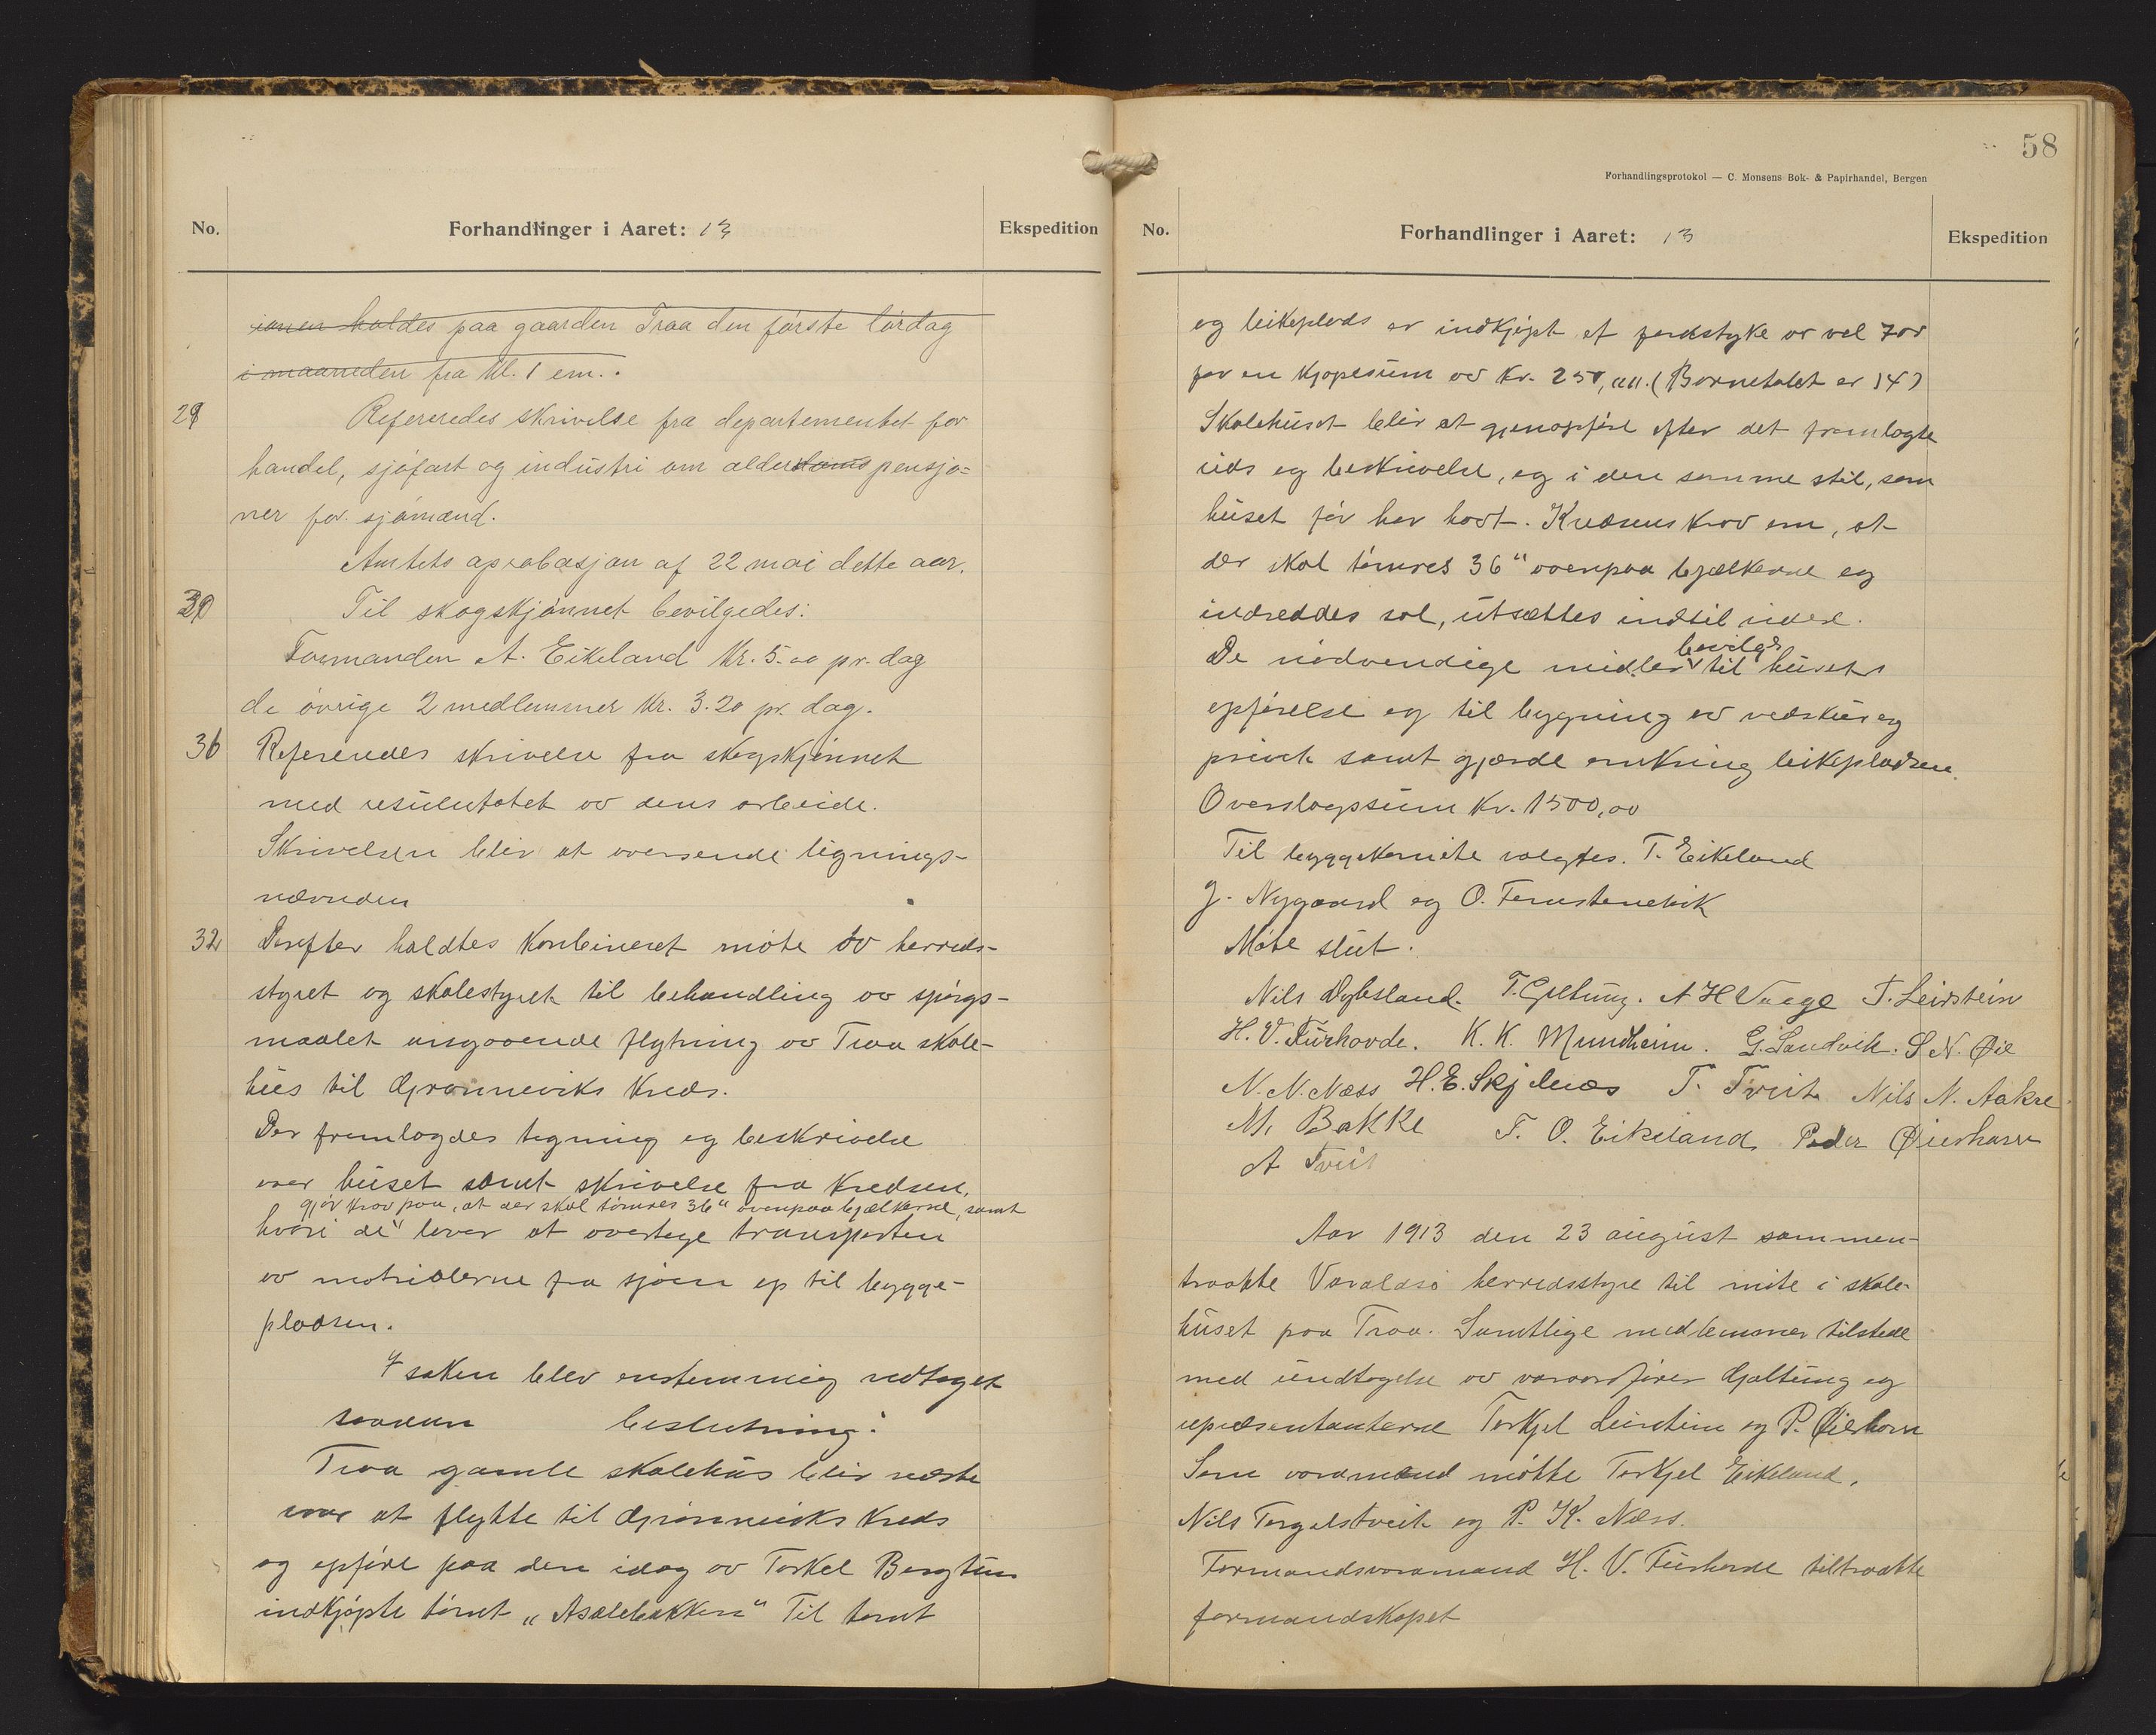 No.
Forhandlinger i Aaret: 13
Ekspedition
ionen holdes paa gaarden Traa den förste lördag
i maaneden fra kl. 1 em..
29
Refereredes skrivelse fra departementet for
handel, sjöfart og industri om alderdoms pensjo=
ner for sjömænd.
Amtets aprobasjon af 22 mai dette aar.
30
Til skogskjönnet bevilgedes:
Formanden A. Eikeland Kr. 5.00 pr. dag
de övrige 2 medlemmer Kr. 3.20 pr. dag.
36
Refereredes skrivelse fra skogskjönnet
med resulutatet av dens arbeide.
Skrivelsen blir at oversende lignings-
nævnden
32
Derefter holdtes Konbineret möte av herreds-
styret og skolestyret til behandling av spörgs-
maalet angaaende flytning av Traa skole-
hus til Grönneviks Kreds.
Der fremlagdes tegning og beskrivelse
over huset samt skrivelse fra Kredsen,
gjör krav paa, at der skal tömres 36" ovenpaa bjælkerne, samt
hvori de lover at overtage transporten
av matrialerne fra sjöen op til bygge-
pladsen.
I saken blev enstemmig vedtaget
saadan beslutning:
Traa gamle skolehus blir næste
vaar at flytte til Grönneviks Kreds
og opföre paa den idag av Torkel Bergtun
indkjöpte tomt „Asalebakken" Til tomt
58
Forhandlingsprotokol — C. Monsens Bok- & Papirhandel, Bergen
No.
Forhandlinger i Aaret: 13
Ekspedition
og leikeplads er indkjöpt et jordstyke av vel 7 ar
for en Kjöpesum av Kr. 250,00. (Barnetalet er 14)
Skolehuset blir at gjenopföre efter det fremlagte
rids og beskrivelse, og i den samme stil, som
huset för har havt. Kredsens Krav om, at
der skal tömres 36" ovenpaa bjælkerne og
indreddes sal, utsættes indtil videre.
De nödvendige midler bevilges til husets
opförelse og til bygning av vedskur og
privet samt gjærde omkring leikepladsen.
Overslagssum Kr. 1500,00
Til byggekomite valgtes. T. Eikeland
J. Nygaard og O. Tennstenvik
Möte slut.
Nils Dybsland. T. Gjeltung. A H Vaage T. Leirstein
H. V. Furhovde. K. K. Mundheim. G. Sandvik. S. N. Öie
N. N. Næss H. E. Skjelnæs T. Tveit Nils N. Aakre
M. Bakke T. O. Eikeland Peder Øierhavn
A Tveit
Aar 1913 den 23 august sammen-
traadte Varaldsö herredsstyre til möte i skole-
huset paa Traa. Samtlige medlemmer tilstede
med undtagelse av varaordförer Gjeltung og
repræsentanterne Torkjel Leirstein og P. Øierhavn
Som varamænd mötte Torkjel Eikeland,
Nils Torgilstveit og P. K. Næss.
Formandsvaramand H. V. Furhovde tiltraadte
formandskapet